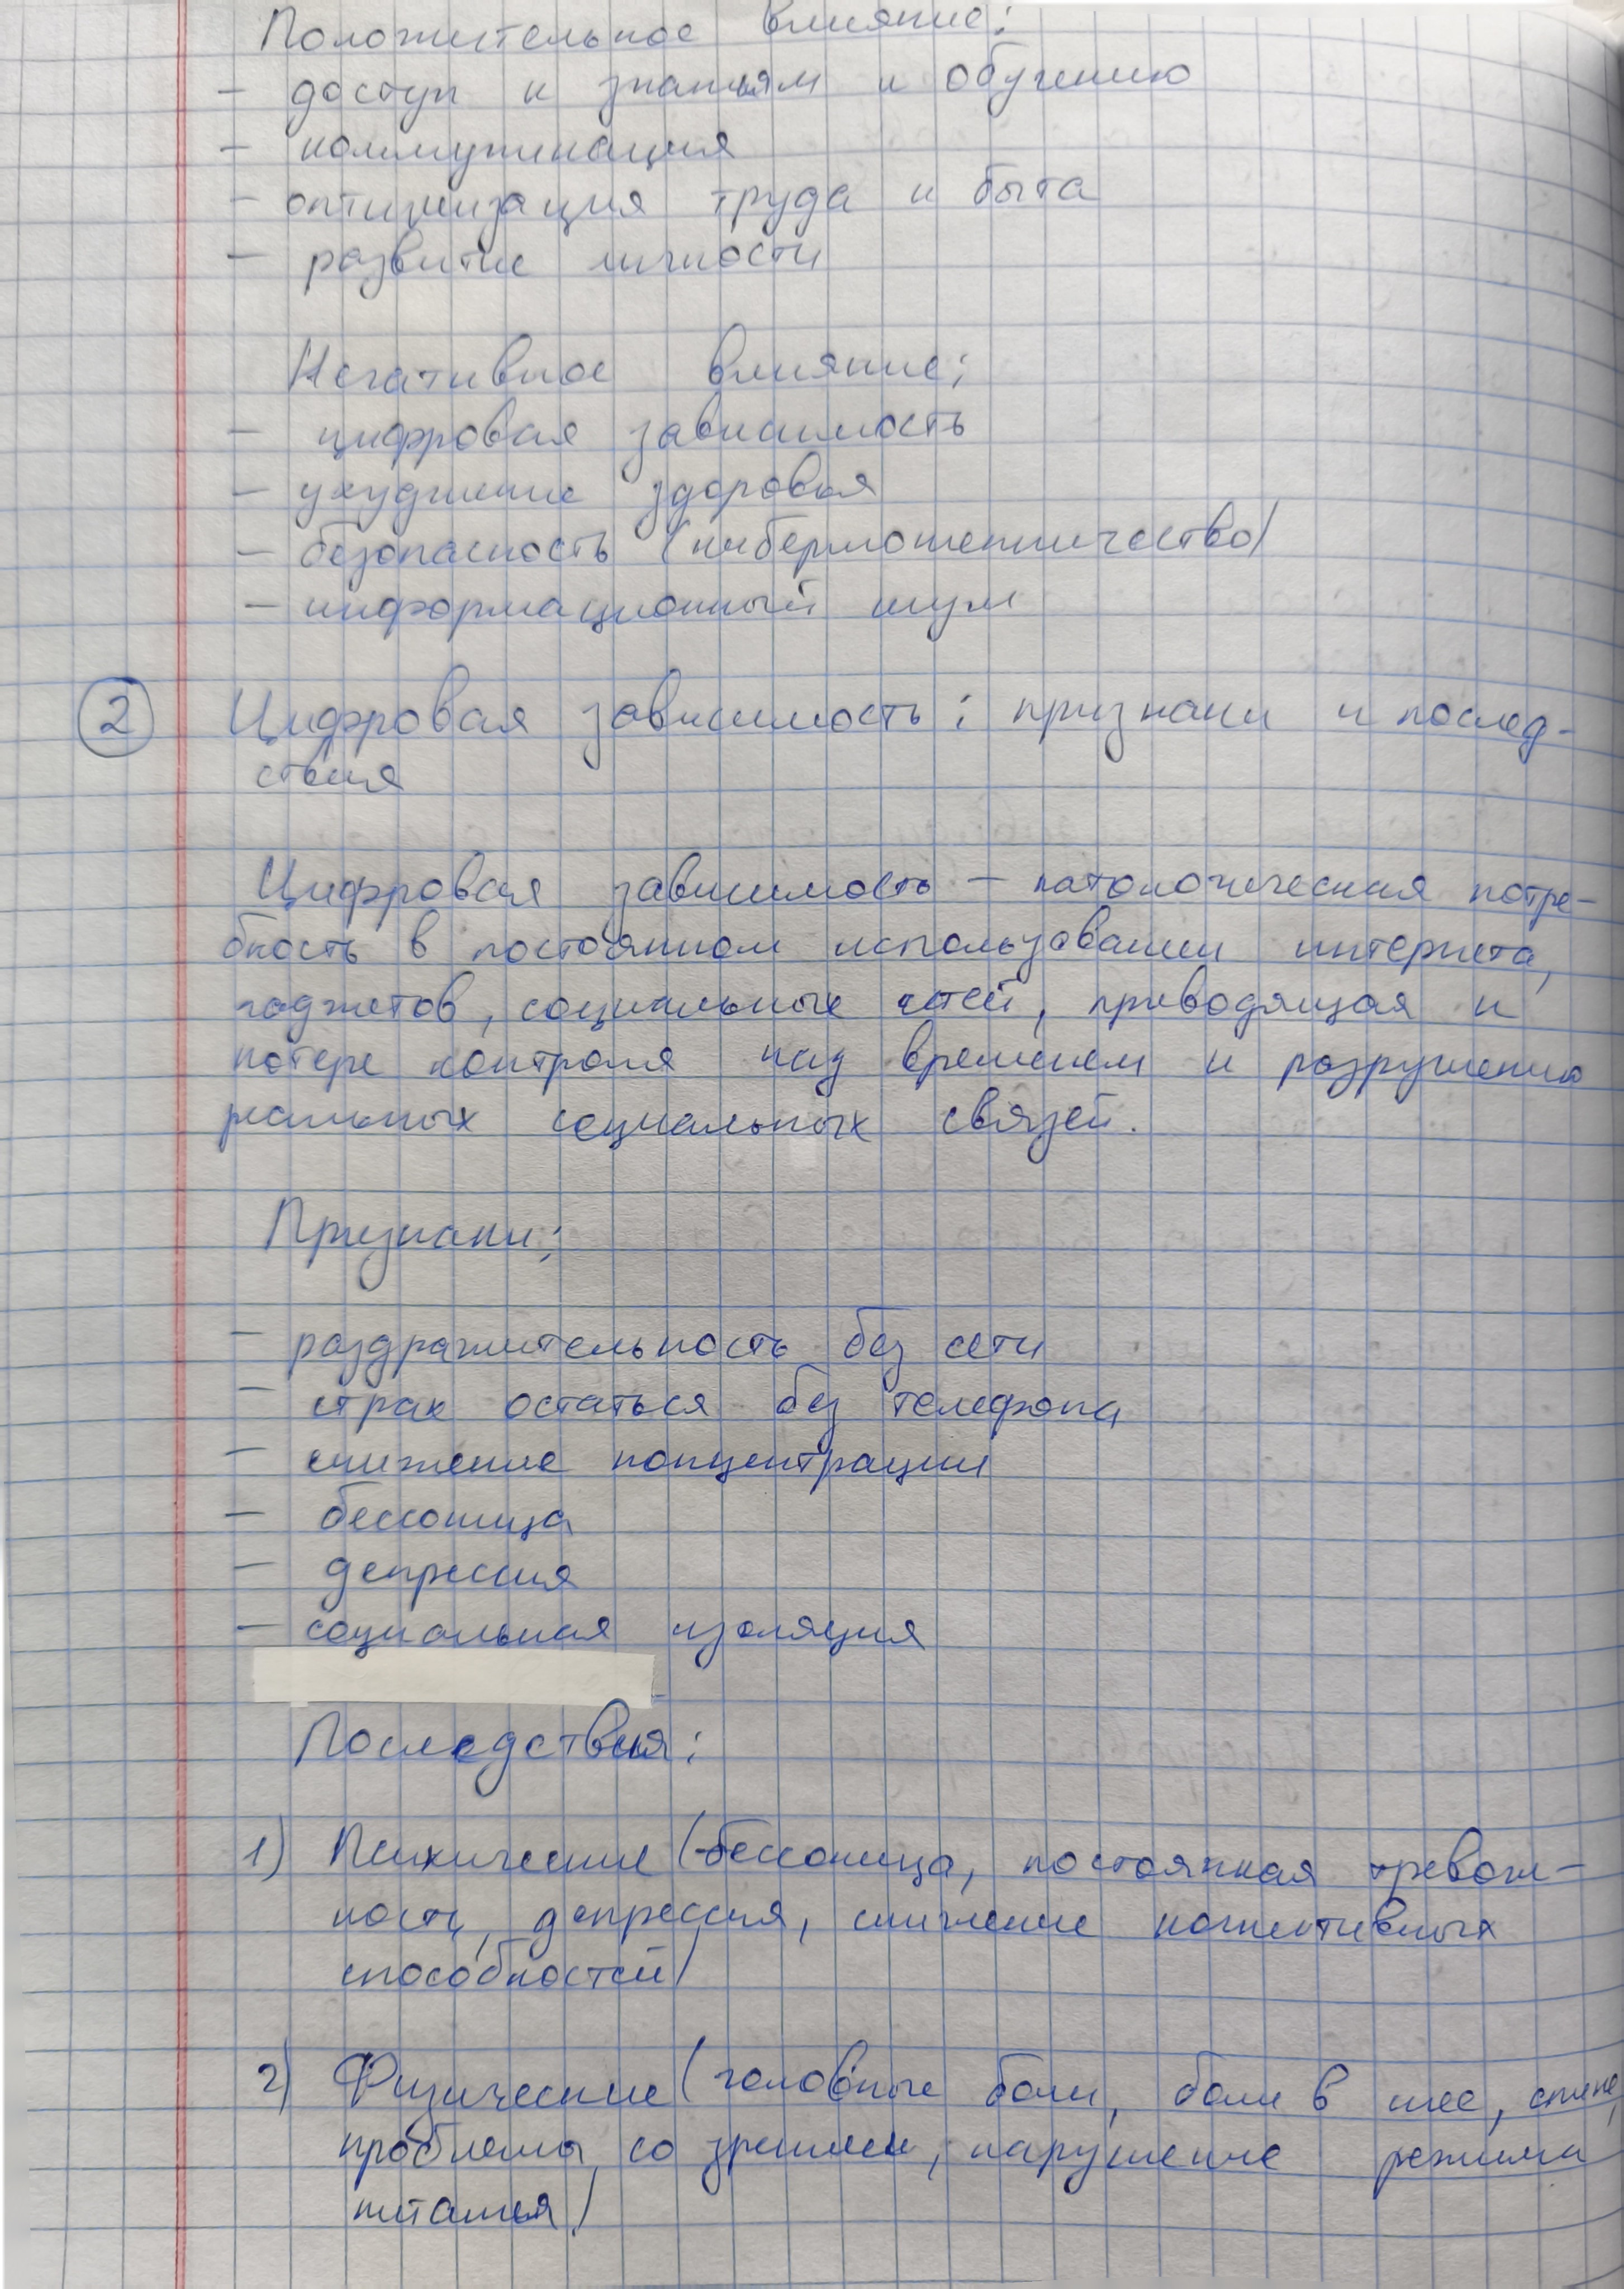 Положительное влияние:
- доступ к знаниям и обучению
- коммуникация
- оптимизация труда и быта
- развитие личности
Негативное влияние:
- цифровая зависимость
- ухудшение здоровья
- безопасность (кибермошенничество)
- информационный шум
2 Цифровая зависимость: признаки и послед-
ствия
Цифровая зависимость - патологическая потре-
бность в постоянном использовании интернета,
гаджетов, социальных сетей, приводящая к
потере контроля над временем и разрушению
реальных социальных связей.
Признаки:
- раздражительность без сети
- страх остаться без телефона
- снижение концентрации
- бессоница
- депрессия
- социальная изоляция
Последствия:
1) Психические (бессоница, постоянная тревож-
ность, депрессия, снижение когнитивных
способностей)
2) Физические (головные боли, боли в шее, спине,
проблемы со зрением, нарушение режима
питания)